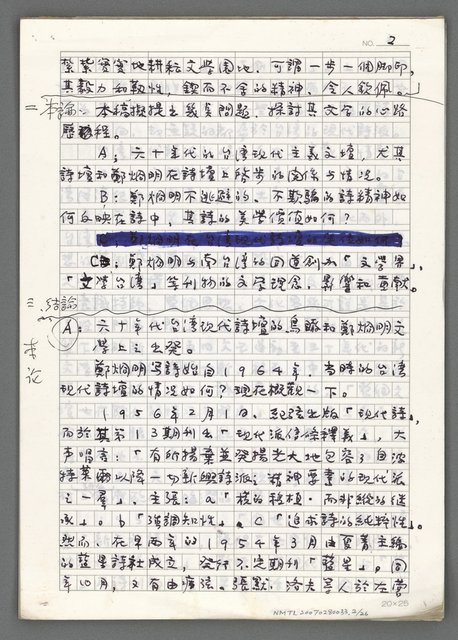 NO. 2
紮紮實實地耕耘文學園地，可謂一步一個腳印，
其毅力和韌性，鍥而不舍的精神，令人欽佩。
二 本論：本稿擬提出幾頁問題，探討其文學的心路
歷程。
A：六十年代的台灣現代主義文壇，尤其
詩壇和鄭烱明在詩壇上踏步的關係与情況。
B：鄭烱明不逃避的、不欺騙的詩精神如
何反映在詩中，其詩的美學價值如何？
C：鄭烱明与南台灣的同道創辦「文學界」、
「文學台灣」等刊物的文學理念、影響和貢獻。
三 結論
A：六十年代台灣現代詩壇的鳥瞰和鄭烱明文
學上之出發。
本論
鄭烱明寫詩始自1964年，當時的台灣
現代詩壇的情況如何？現在概觀一下。
1956年2月1日，紀弦出版「現代詩」，
而於其第13期刊出「現代派信條釋義」，大
声唱言：「有所揚棄並發揚光大地包容了自波
特萊爾以降一切新興詩派之精神要素的現代派
之一群」，主張：a「橫的移植，而非縱的繼
承」。b「強調知性」。c「追求詩的純粹性」。
然而，在早兩年的1954年3月由夏菁主編
的藍星詩社成立，發行不定期刊「藍星」。同
年10月，又有由瘂弦、張默、洛夫等人於左營
NMTL20070280033, 2/26
20×25